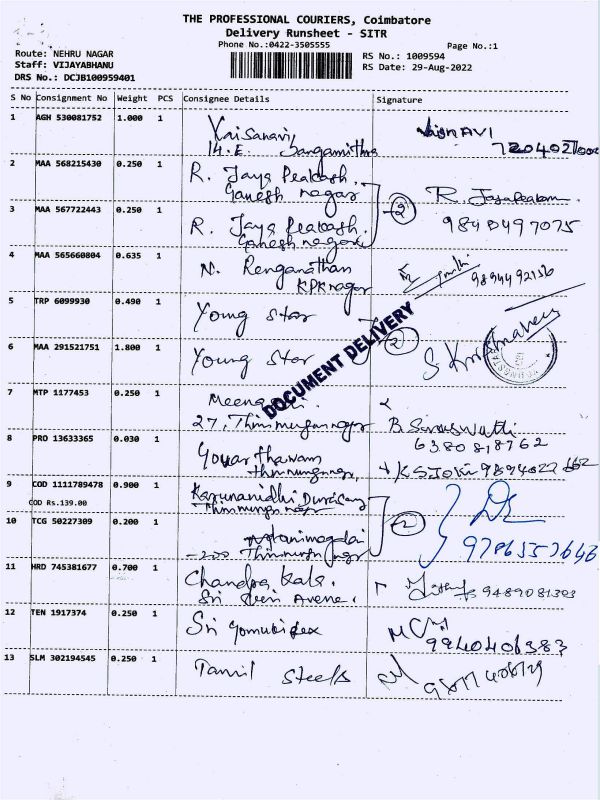 THE PROFESSIONAL COURIERS, Coimbatore
Delivery Runsheet - SITR
Phone No.:0422-3505555
Page No.:1
Route: NEHRU NAGAR
Staff: VIJAYABHANU
DRS No.: DCJB100959401
RS No.: 1009594
RS Date: 29-Aug-2022
S No Consignment No Weight PCS Consignee Details Signature
1 AGH 530081752 1.000 1 Vaisanavi VaisnAVI
14.E. Sangamithra
2 MAA 568215430 0.250 1 R. Jaya Prakash. R. Jayaprakash
Ganesh nagar 2
3 MAA 567722443 0.250 1 R. Jaya Prakash. 9840497075
Ganesh nagar
4 MAA 565660804 0.635 1 N. Renganathan
KPK nagar 9894492156
5 TRP 6099930 0.490 1 Young Star
DOCUMENT DELIVERY
6 MAA 291521751 1.800 1 Young Star 2 S Krishnaveni
7 MTP 1177453 0.250 1
27, Thirumurugan nagar B. Saraswathi
8 PRO 13633365 0.030 1 6380818762
9 COD 1111789478 0.900 1 Karunanidhi
COD Rs.139.00
10 TCG 50227309 0.200 1 2
9786557646
11 HRD 745381677 0.700 1 Chandra kala. 9489081303
Sri Avenue.
12 TEN 1917374 0.250 1 Sri Gomuki tex 9940406383
13 SLM 302194545 0.250 1 Tamil Steels